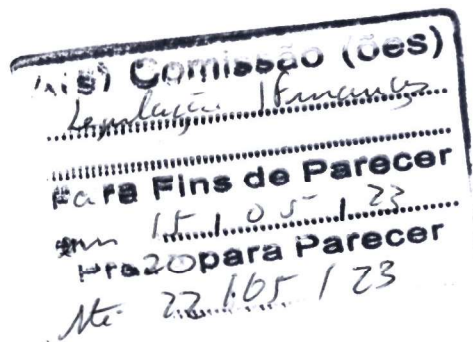 À(s) Comissão (ões)
Legislação / Finanças
Para Fins de Parecer
em 15 / 05 / 23
Prazo para Parecer
Até 22 / 05 / 23